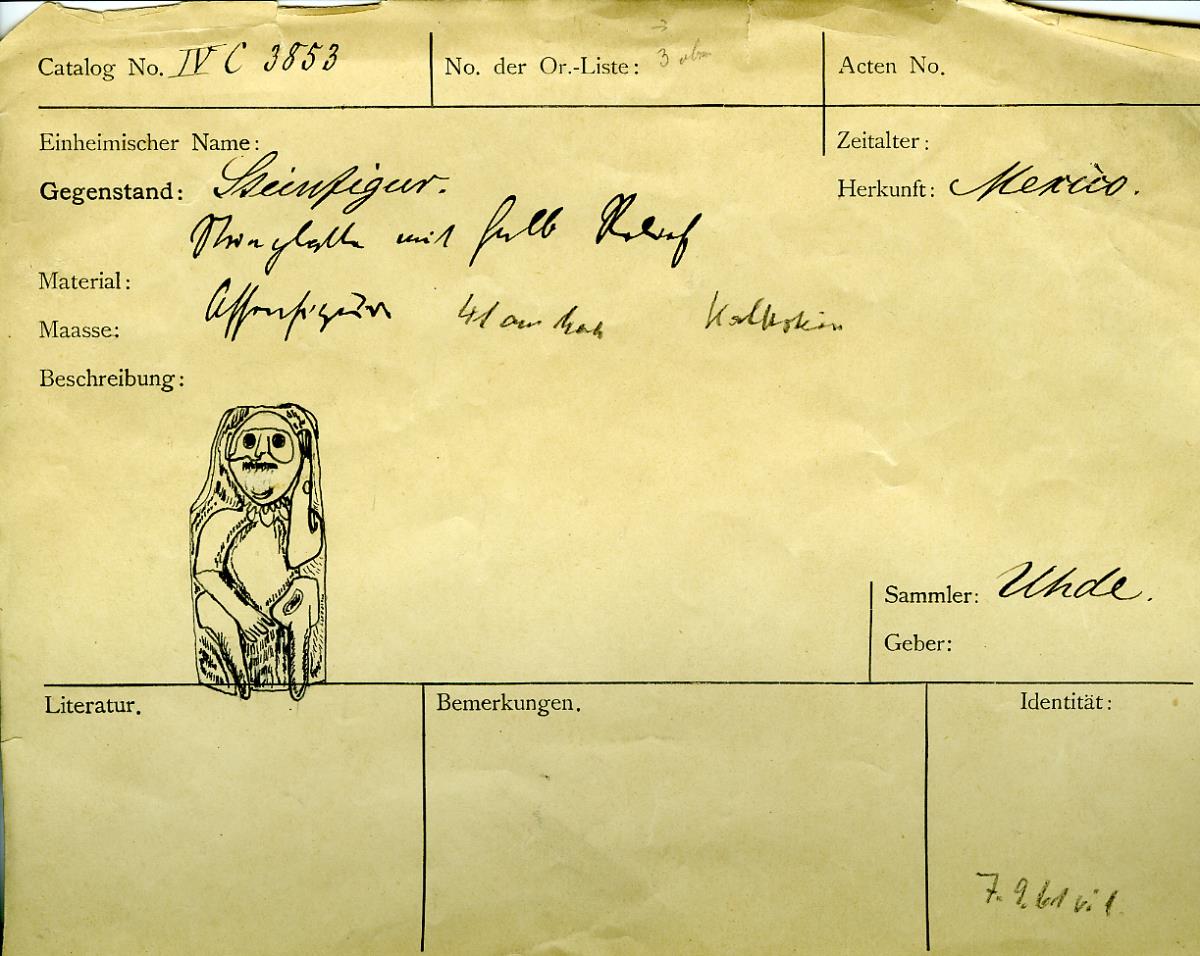 Catalog No. IV C 3853
No. der Or.-Liste: 3
Acten No.
Einheimischer Name:
Zeitalter:
Gegenstand: Steinfigur.
Herkunft: Mexico.
Steinplatte mit Halb Relief
Material:
Affenfigur 41 cm hoch Kalkstein
Maasse:
Beschreibung:
Sammler: Uhde.
Geber:
Literatur.
Bemerkungen.
Identität:
7. 9. 61